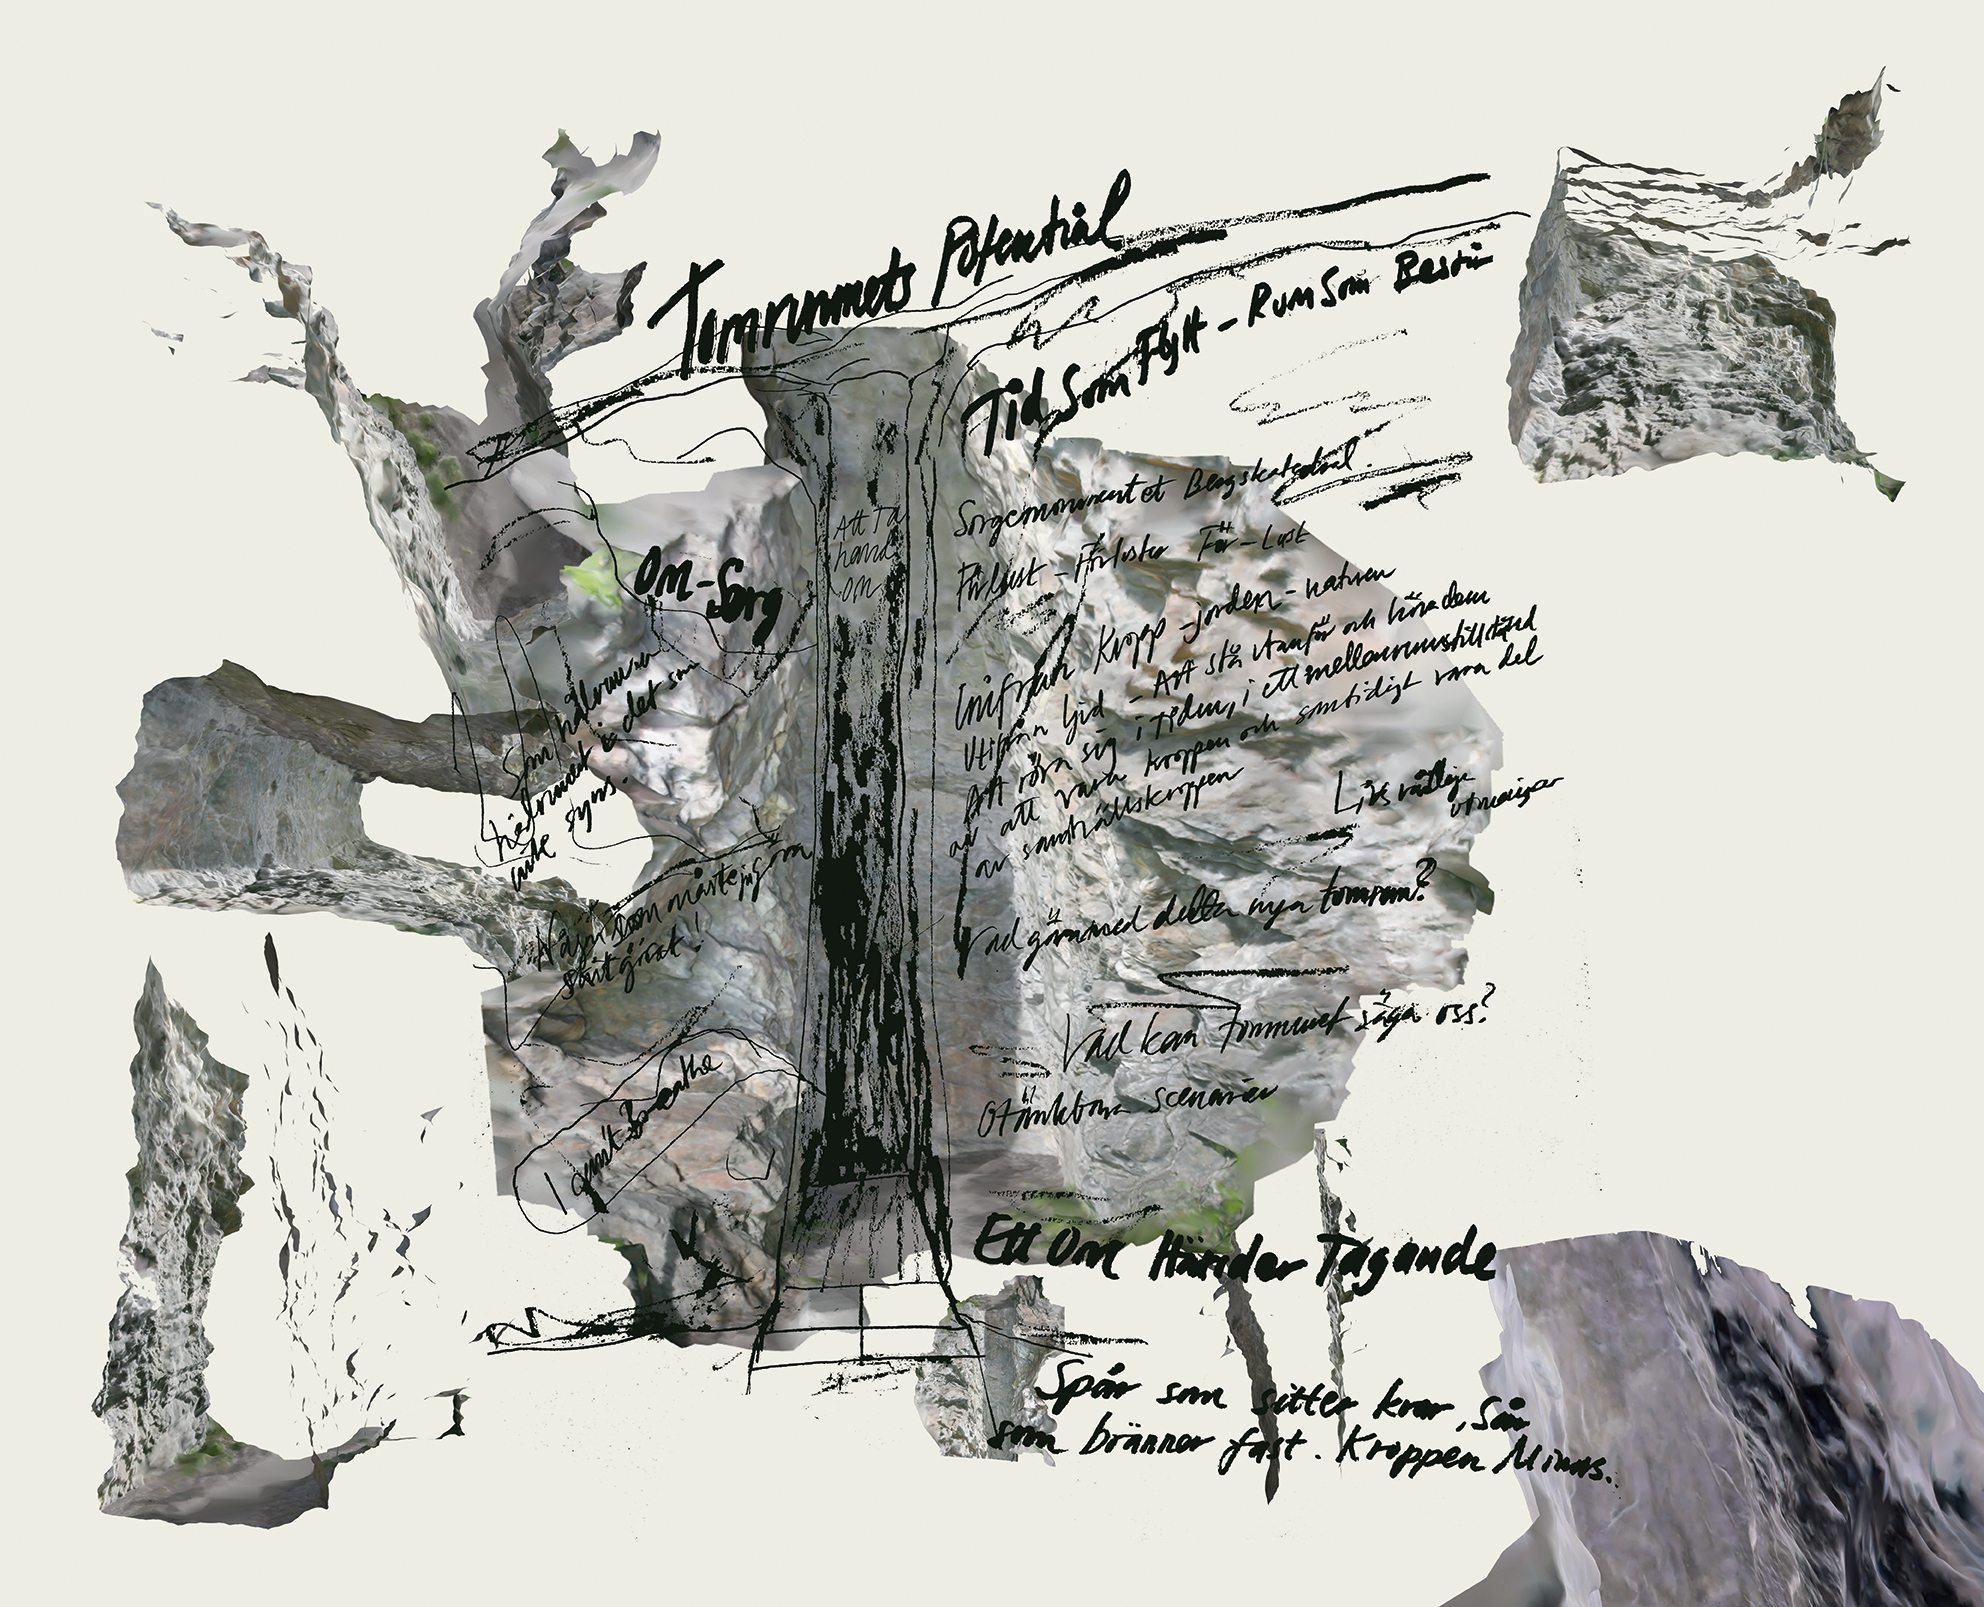 Tomrummets Potential
Tid Som Flytt - Rum Som Består
Sorgemonumentet Bergskatedral.
Förlust - Förluster För-Lust
Inifrån Kropp - jorden - naturen
Utifrån ljud - Att stå utanför och höra dem
Att röra sig i tiden, i ett mellanrumstillstånd
av att vara kroppen och samtidigt vara del
av samhällskroppen
Livsviktiga
utmaningar
Vad göra med detta nya tomrum?
Vad kan tommumet säga oss?
Otänkbara scenarier
Ett Om Händer Tagande
Spår som sitter kvar, Sår
som bränner fast. Kroppen Minns.
Att Ta
hand
om
Om-Sorg
Som hålrummen
är det som
inte syns.
Något som måste jag göra
sort gjort!
I can't Breathe